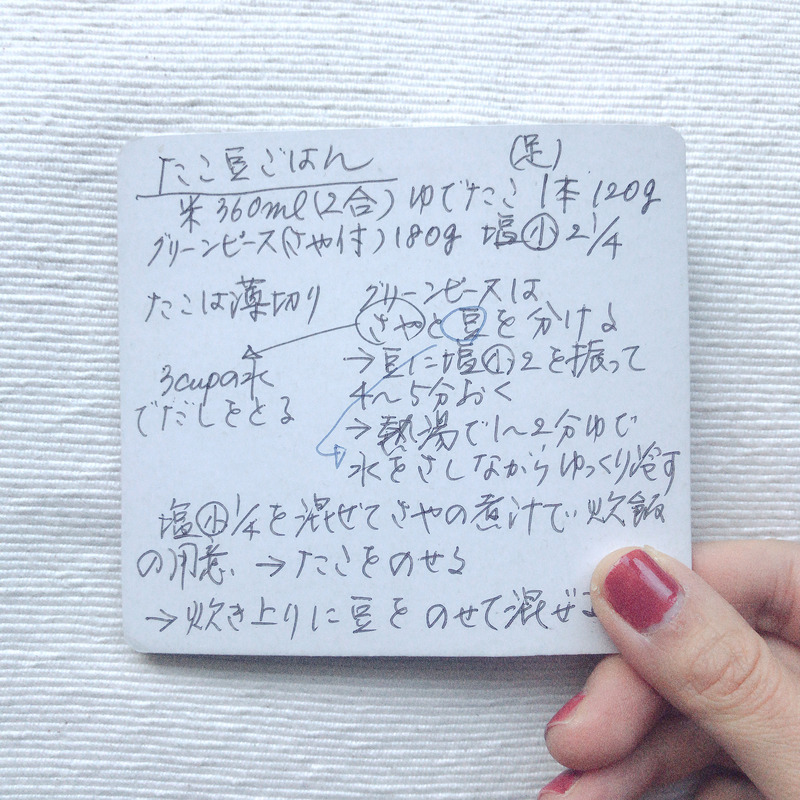 たこ豆ごはん
米360ml(2合)ゆでたこ(足)1本120g
グリーンピース(さや付)180g 塩小2 1/4
たこは薄切り
グリーンピースは
さやと豆を分ける
→豆に塩小2を振って
4〜5分おく
→熱湯で1〜2分ゆで
水をさしながらゆっくり冷す
3cupの水
でだしをとる
塩小1/4を混ぜてさやの煮汁で炊飯
の用意、→たこをのせる
→炊き上りに豆をのせて混ぜる